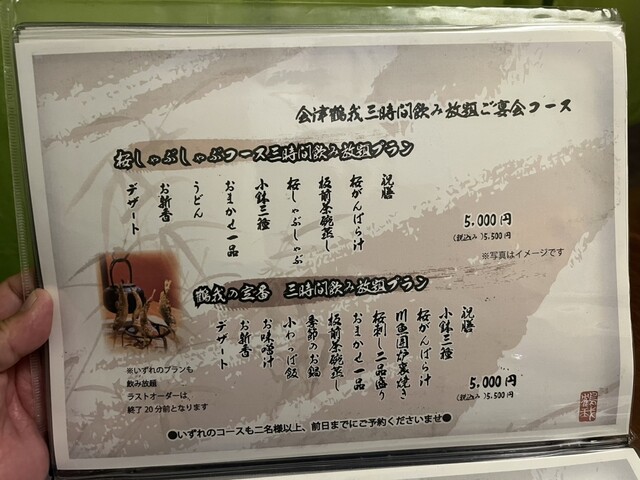 会津鶴我三時間飲み放題ご宴会コース
桜しゃぶしゃぶコース三時間飲み放題プラン
祝膳
桜がんばら汁
板前茶碗蒸し
桜しゃぶしゃぶ
小鉢三種
おまかせ一品
うどん
お新香
デザート
5.000円
(税込み)5.500円
※写真はイメージです
鶴我の定番 三時間飲み放題プラン
祝膳
小鉢三種
桜がんばら汁
川魚囲炉裏焼き
桜刺し二品盛り
おまかせ一品
板前茶碗蒸し
季節のお鍋
小わっぱ飯
お味噌汁
お新香
デザート
5.000円
(税込み)5.500円
※いずれのプランも
飲み放題
ラストオーダーは
終了20分前となります
●いずれのコースも二名様以上、前日までにご予約くださいませ●